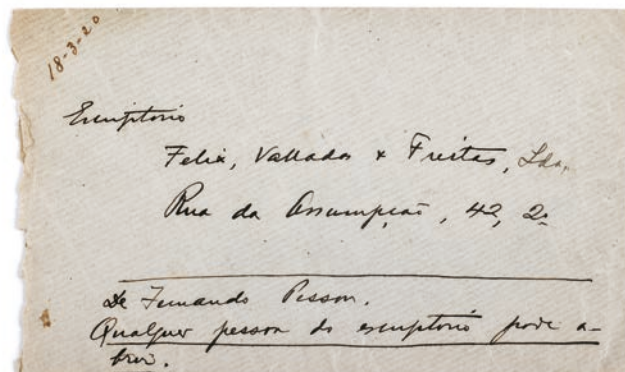 18-3-20
Escriptorio
Felix, Valladas & Freitas, Lda.
Rua da Assumpção, 42, 2º
De Fernando Pessoa.
Qualquer pessoa do escriptorio pode a-
brir.